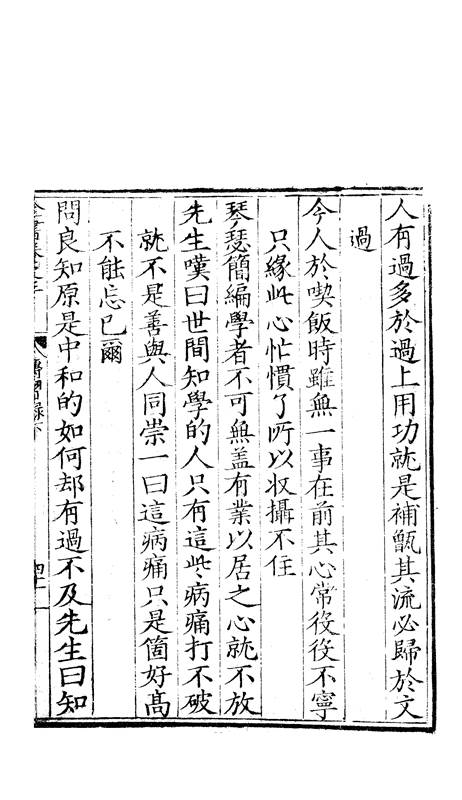 人有過多於過上用功就是補甑其流必歸於文
過
今人於喫飯時雖無一事在前其心常役役不寧
只緣此心忙慣了所以收攝不住
琴瑟簡編學者不可無蓋有業以居之心就不放
先生嘆曰世間知學的人只有這些病痛打不破
就不是善與人同崇一曰這病痛只是箇好高
不能忘己爾
問良知原是中和的如何却有過不及先生曰知
傳習錄下
四十